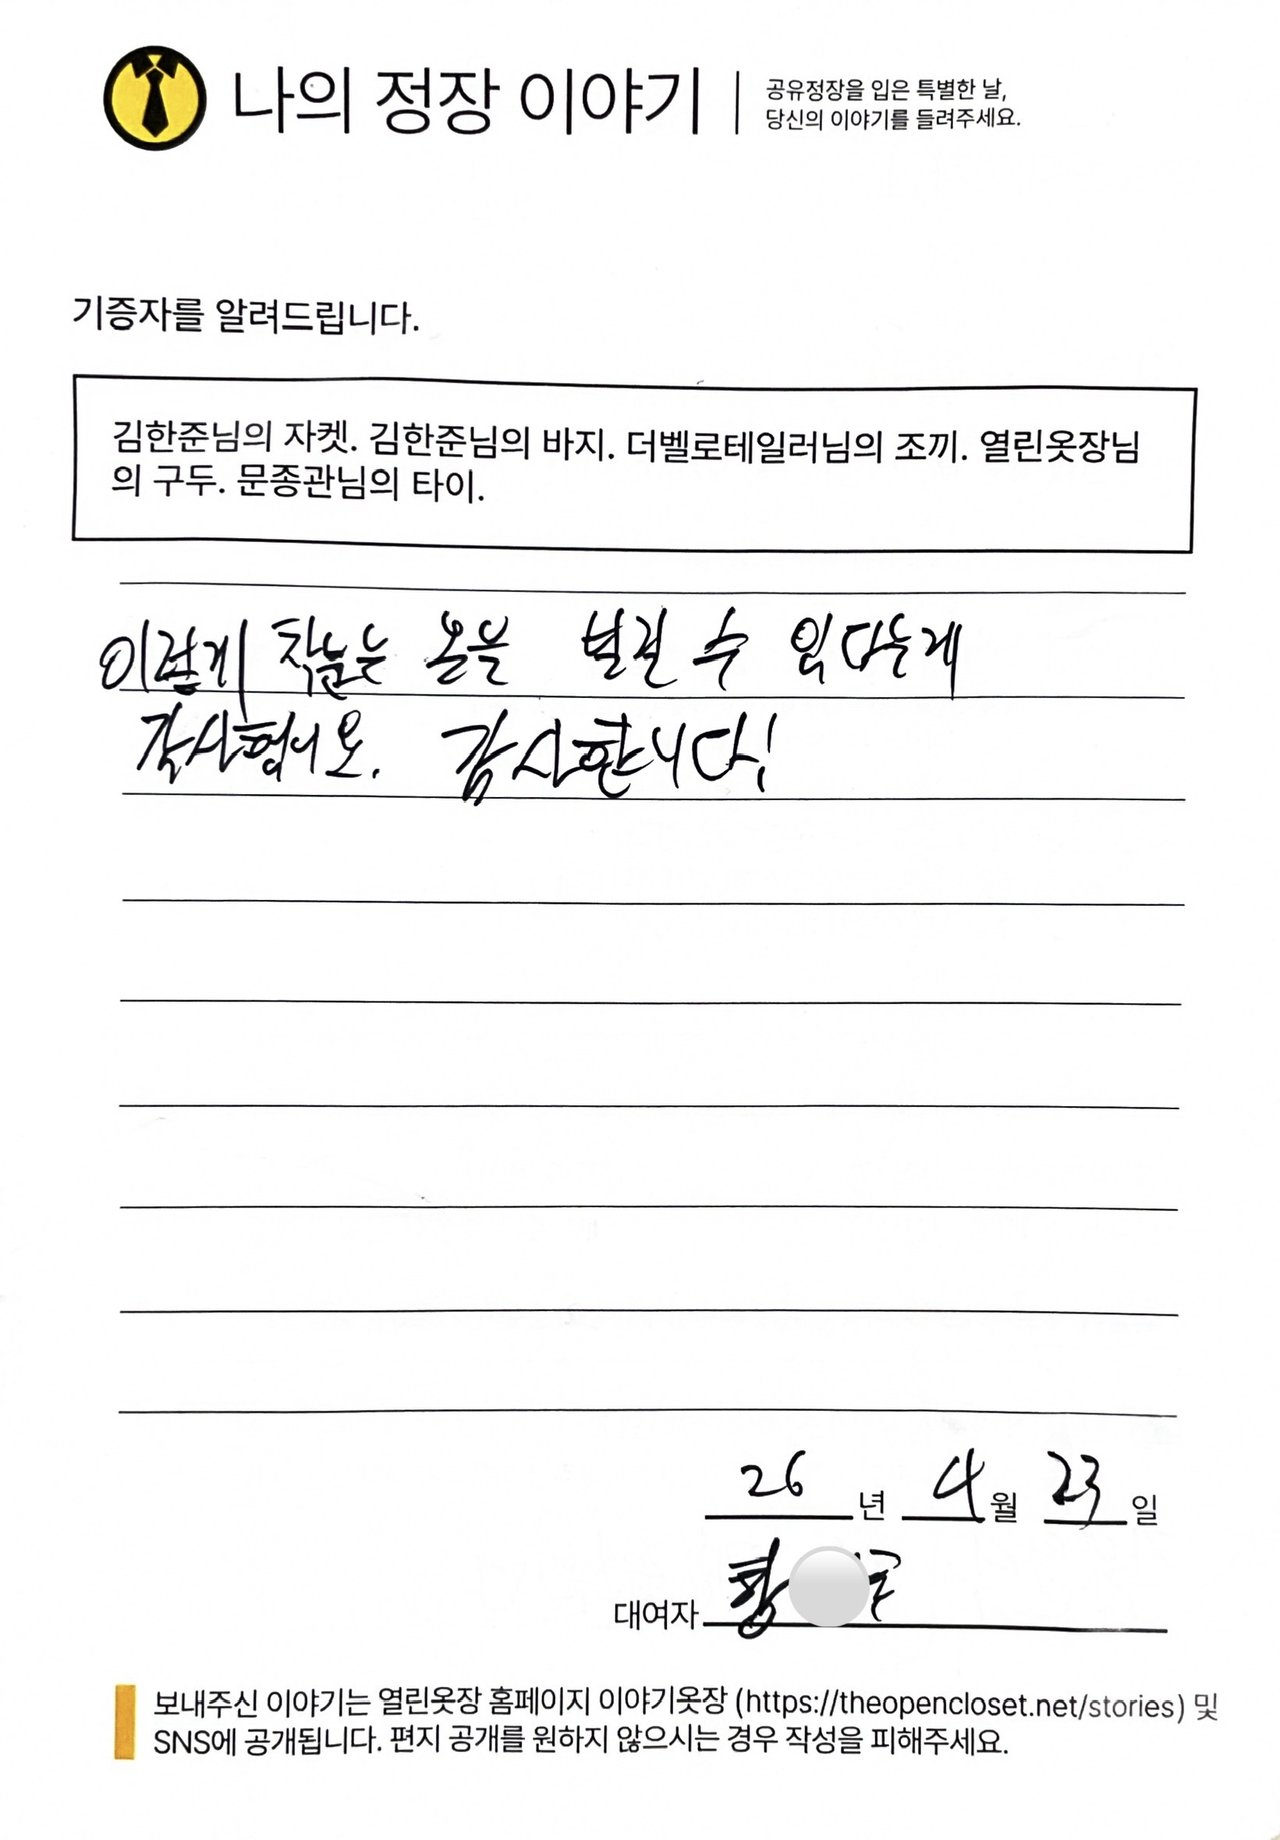 나의 정장 이야기
공유정장을 입은 특별한 날,
당신의 이야기를 들려주세요.
기증자를 알려드립니다.
김한준님의 자켓. 김한준님의 바지. 더벨로테일러님의 조끼. 열린옷장님
의 구두. 문종관님의 타이.
이렇게 옷을 빌릴 수 있다는게
감사합니다!
26년 4월 23일
대여자
보내주신 이야기는 열린옷장 홈페이지 이야기옷장 (https://theopencloset.net/stories) 및
SNS에 공개됩니다. 편지 공개를 원하지 않으시는 경우 작성을 피해주세요.